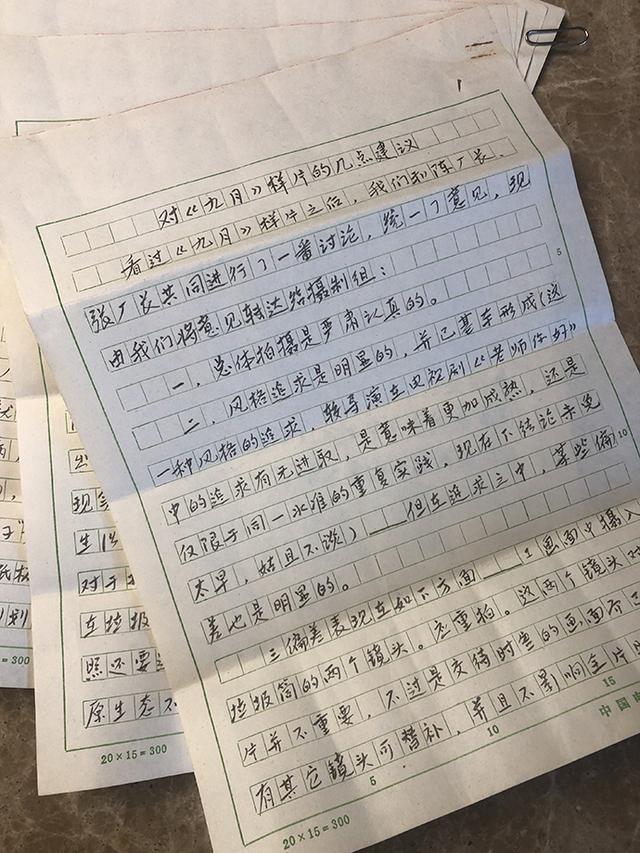 对《九月》样片的几点建议
看过《九月》样片之后，我们和陈厂长、
张厂长共同进行了一番讨论，统一了意见，现
由我们将意见转达给摄制组：
一、总体拍摄是严肃认真的。
二、风格追求是明显的，并已基本形成（这
一种风格的追求，较导演在电视剧《老师你好》
中的追求有无进取，是意味着更加成熟，还是
仅限于同一水准的重复实践，现在下结论未免
太早，姑且不谈）——但在追求之中，某些偏
差也是明显的。
三偏差表现在如下方面——1画面中摄入
垃圾筒的两个镜头。应重拍。这两个镜头对
片并不重要，不过是交待时里的画面而已
有其它镜头可替补，并且不影响全片
5
10
15
5
10
20×15=300
中国
现
生
对于
在垃圾
照还要
原生态不
20×15=300
=300